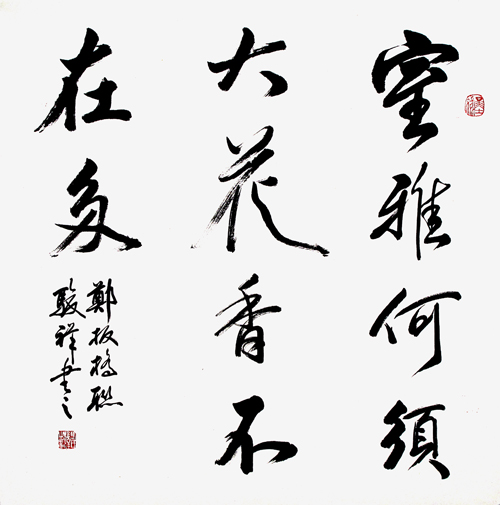 室雅何須
大花香不
在多
鄭板橋聯
駿祥書之